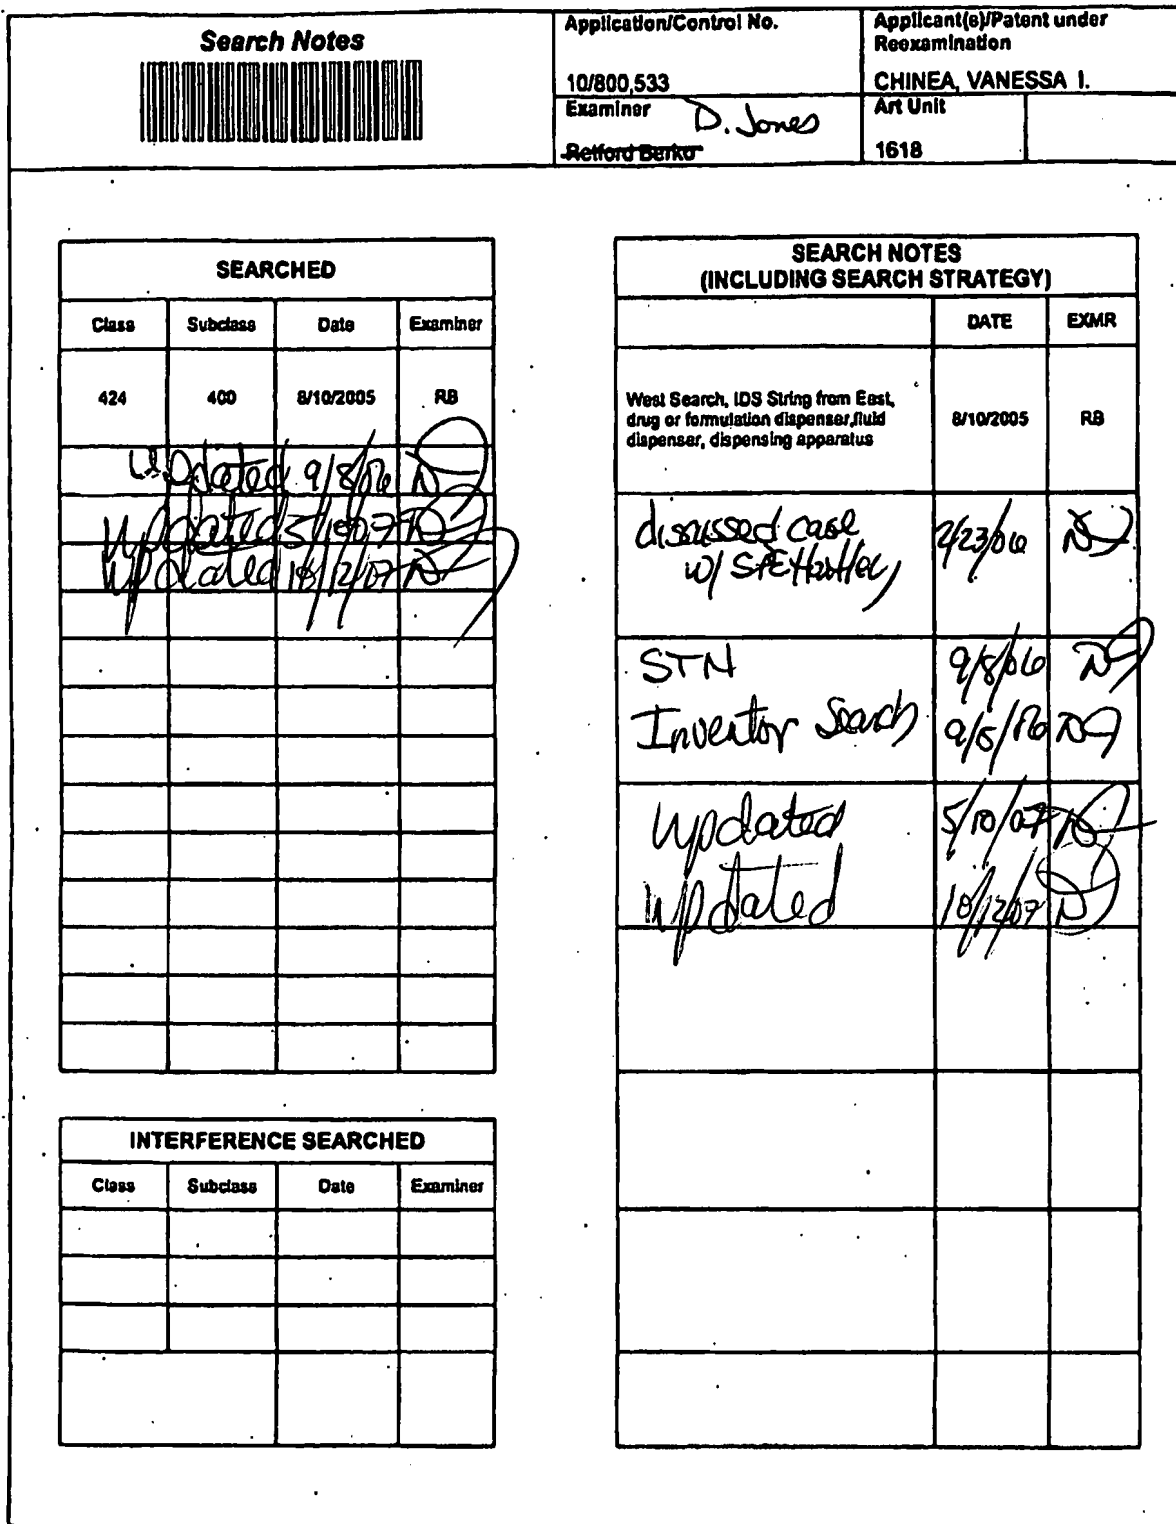 Search Notes
Application/Control No.
10/800,533
Applicant(s)/Patent under
Reexamination
CHINEA, VANESSA I.
Examiner
D. Jones
Retford Berko
Art Unit
1618
SEARCHED
Class Subclass Date Examiner
424 400 8/10/2005 RB
updated 9/8/06
updated 5/10/07
updated 10/12/07
INTERFERENCE SEARCHED
Class Subclass Date Examiner
SEARCH NOTES
(INCLUDING SEARCH STRATEGY)
DATE EXMR
West Search, IDS String from East,
drug or formulation dispenser,fluid
dispenser, dispensing apparatus
8/10/2005 RB
discussed case
w/ SPE
2/23/06
STN 9/8/06
Inventor Search
updated 5/10/07
updated 10/12/07